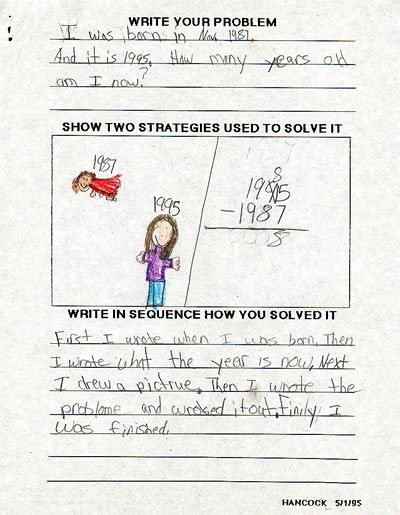 WRITE YOUR PROBLEM
I was born in Nov 1987.
And it is 1995. How many years old
am I now?
SHOW TWO STRATEGIES USED TO SOLVE IT
1987
1995
8
1995
-1987
8
WRITE IN SEQUENCE HOW YOU SOLVED IT
First I wrote when I was born. Then
I wrote what the year is now, Next
I drew a pictrue. Then I wrote the
problome and wroked it out. Finily I
was finished.
HANCOCK 5/1/95